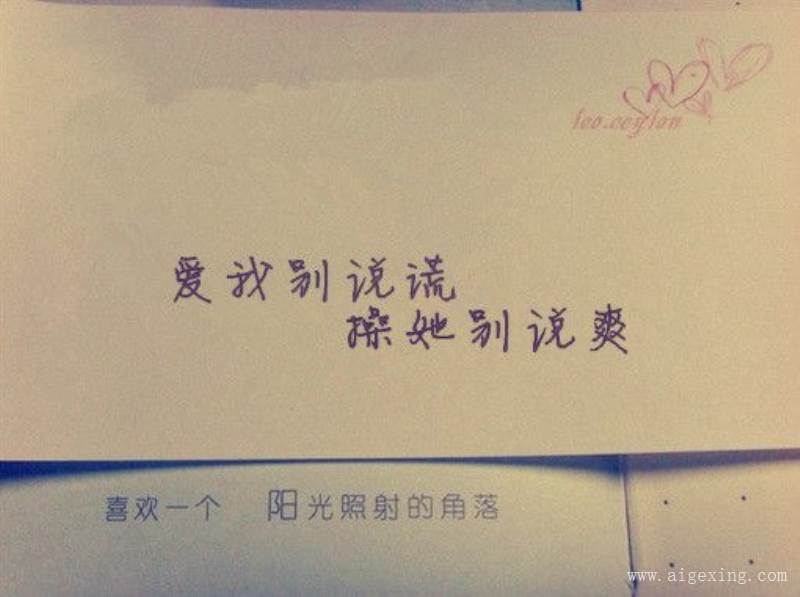 leo.ceylon
爱我别说谎
操她别说爽
喜欢一个 阳光照射的角落
www.aigexing.com